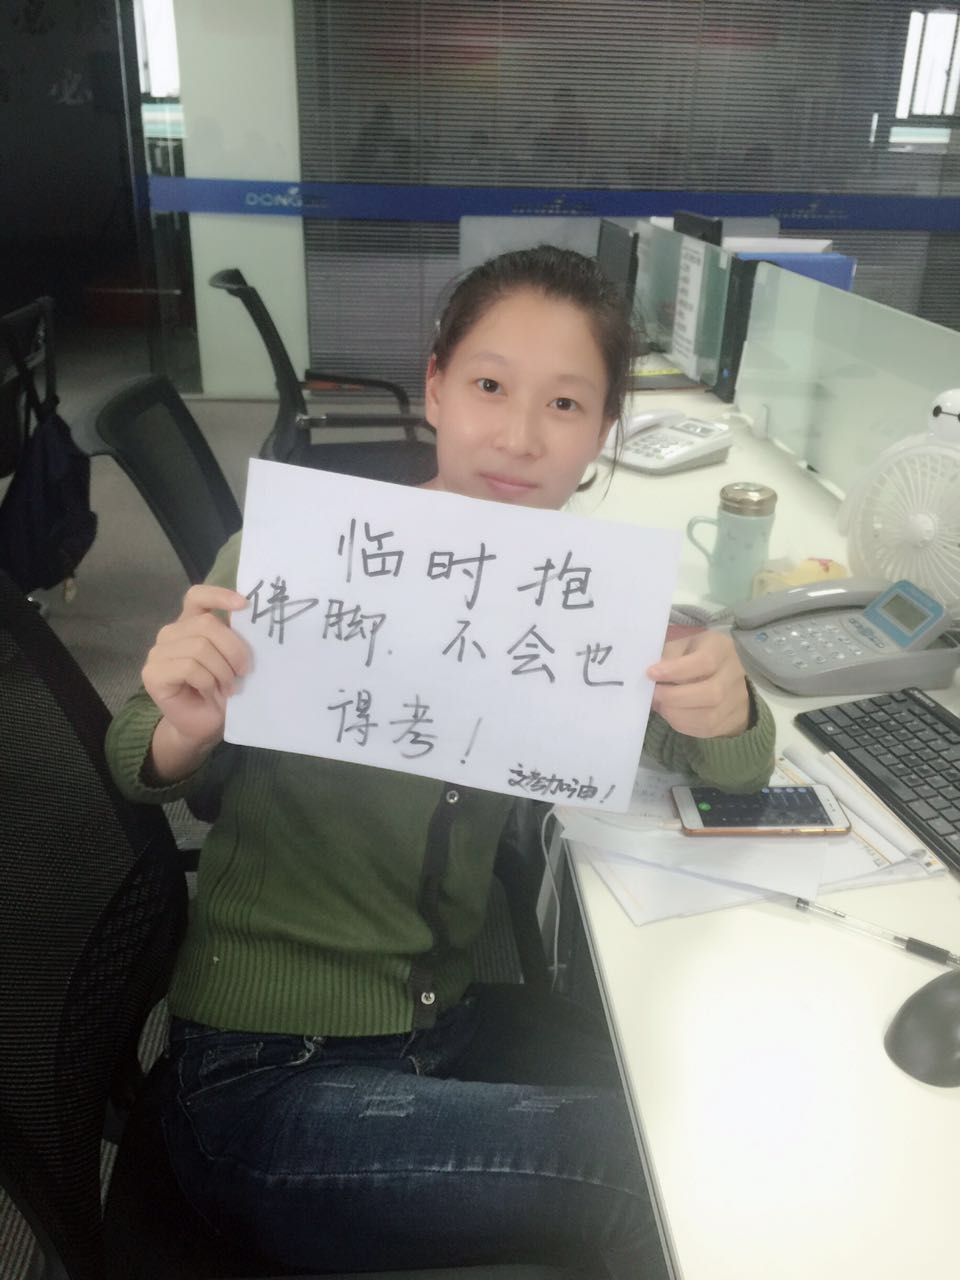 DONG
临时抱
佛脚.不会也
得考！
文考加油！